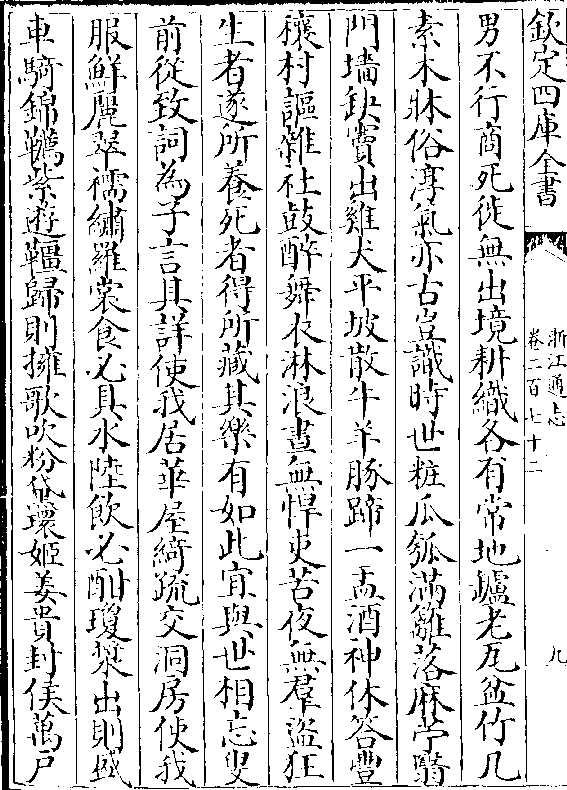 欽定四庫全書
浙江通志
卷二百七十二
九
男不行商死徙無出境耕織各有常地爐老瓦盆竹几
素木牀俗淳氣亦古豈識時世粧瓜瓠滿籬落麻苧翳
門墻缺竇出雞犬平坡散牛羊豚蹄一盂酒神休答豐
穰村謳雜社鼓醉舞衣淋浪晝無悍吏苦夜無羣盜狂
生者遂所養死者得所藏其樂有如此宜與世相忘叟
前從致詞為子言其詳使我居華屋綺疏交洞房使我
服鮮麗翠襦繡羅裳食必具水陸飲必酣瓊漿出則盛
車騎錦韉紫遊韁歸則擁歌吹粉黛環姬姜貴封侯萬戶